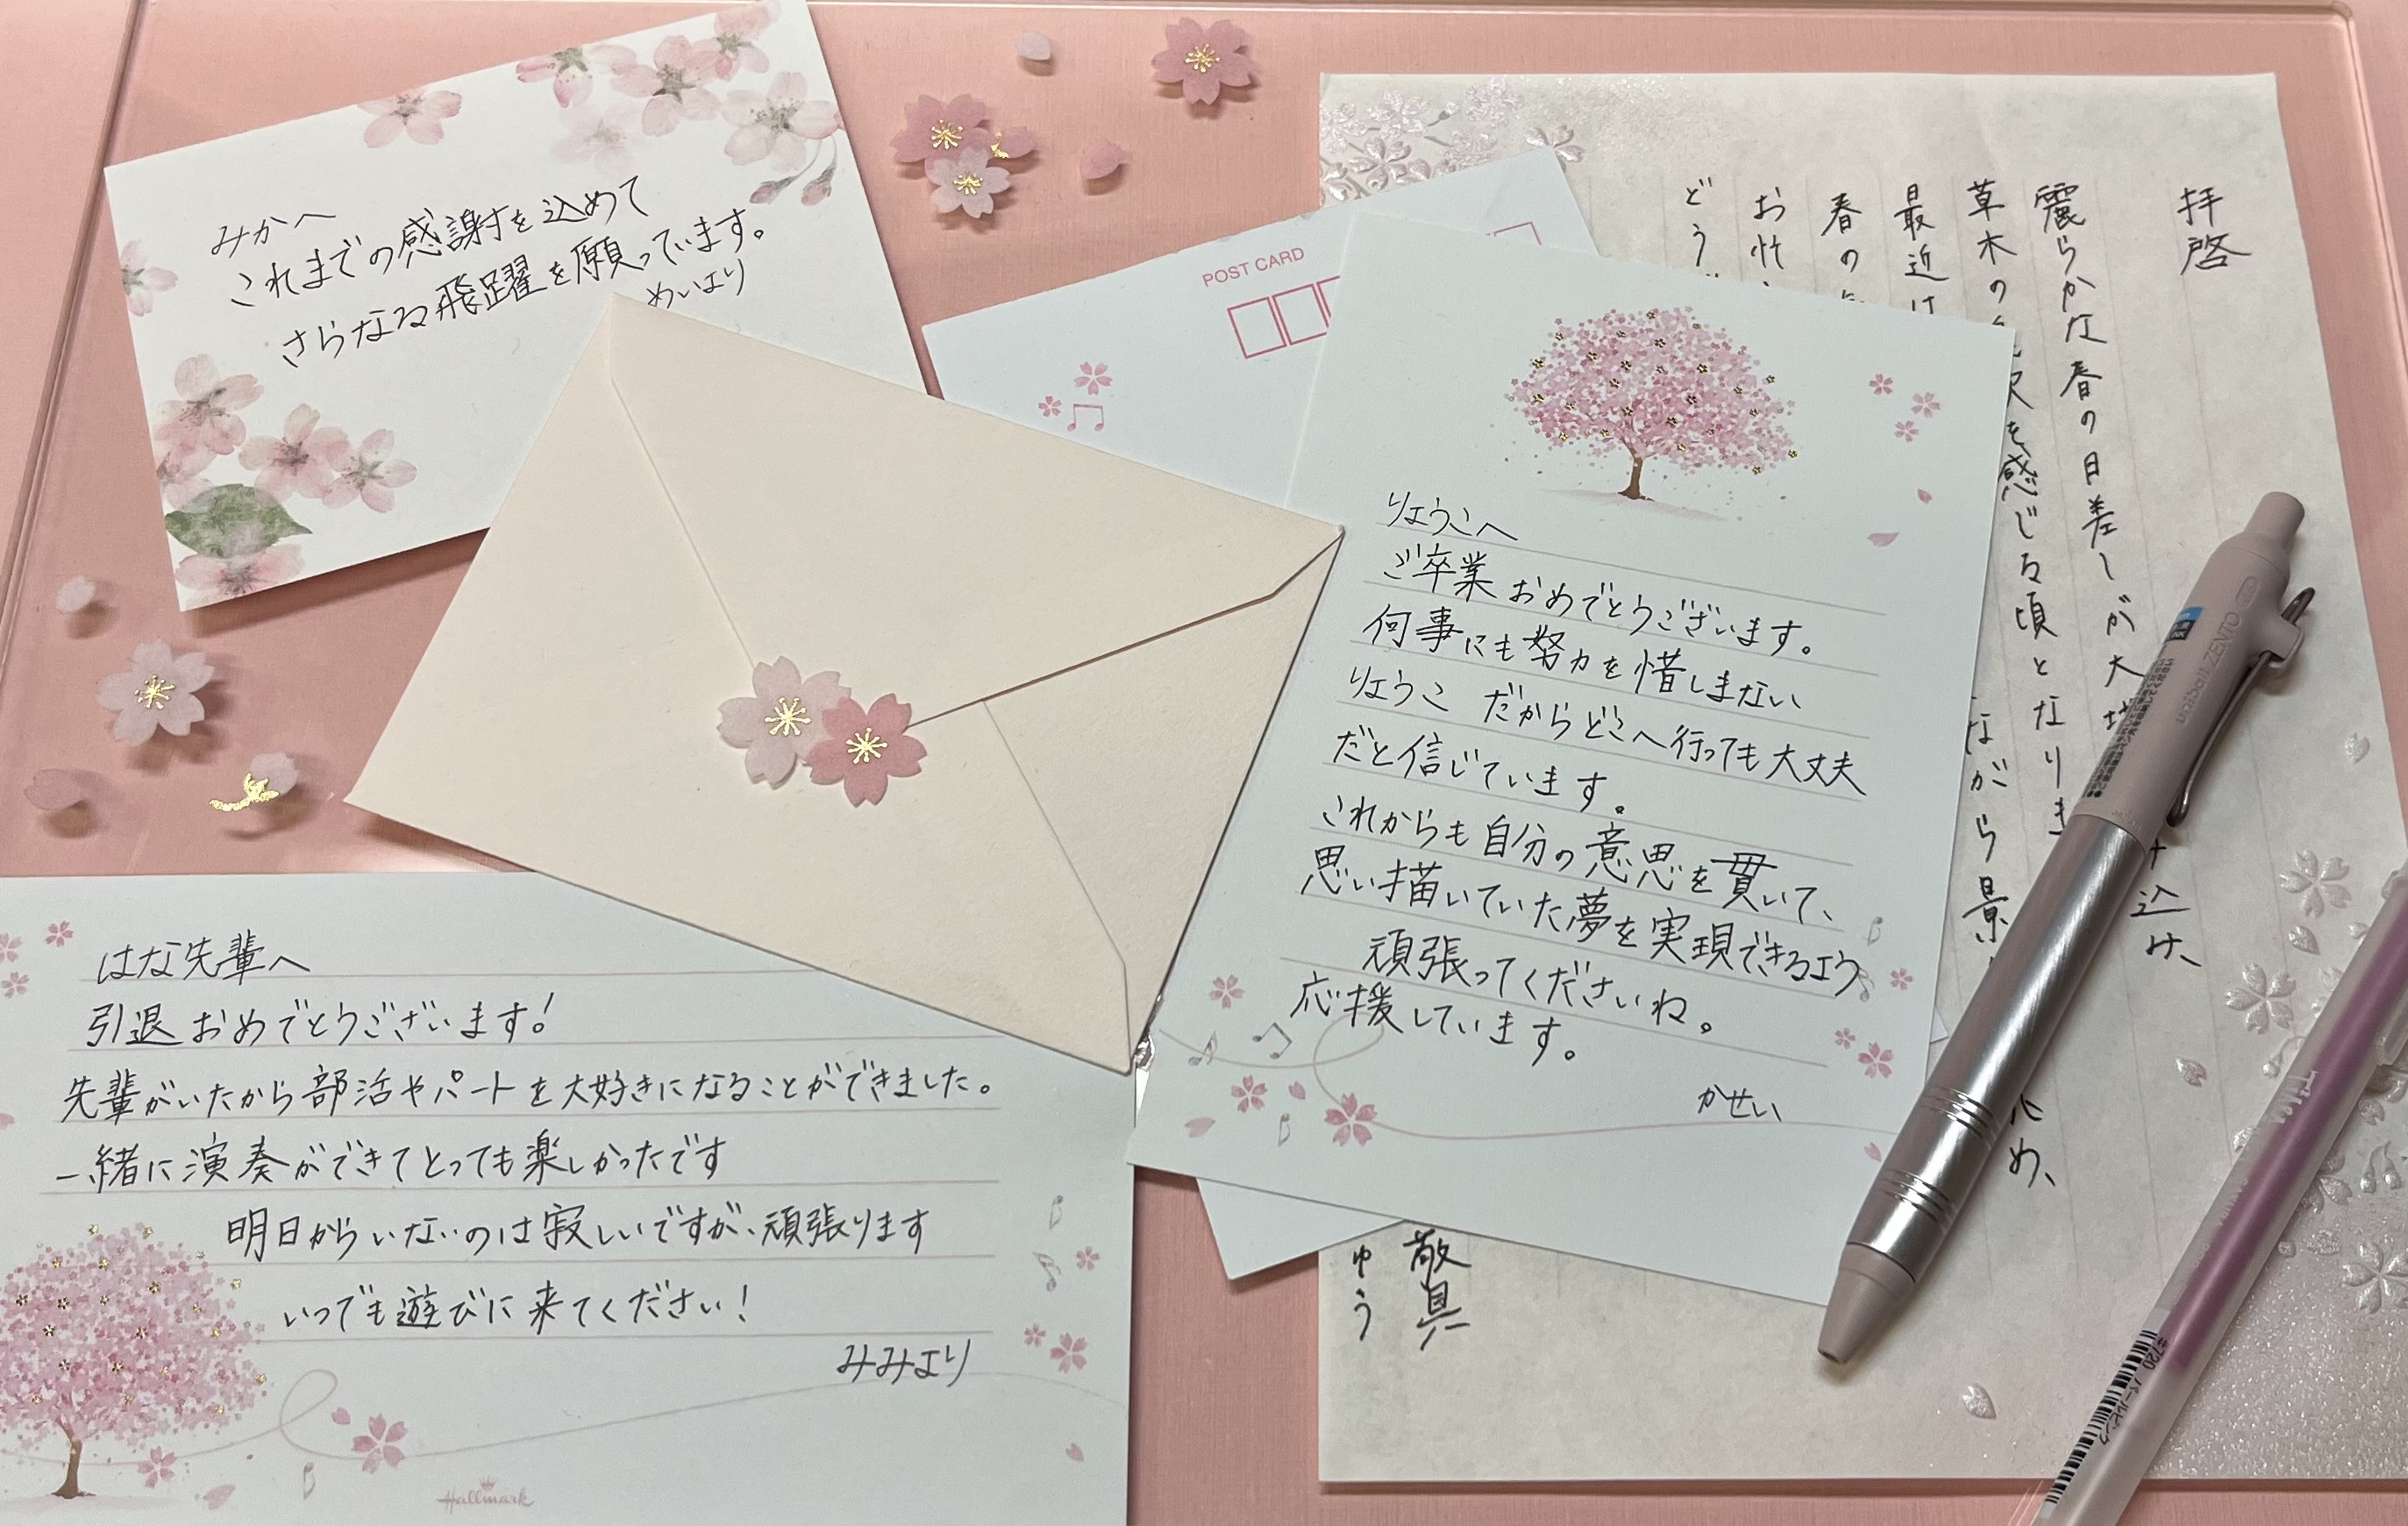 みかへ
これまでの感謝を込めて
さらなる飛躍を願っています。
めいより
POST CARD
りょうこへ
ご卒業おめでとうございます。
何事にも努力を惜しまない
りょうこ だからどこへ行っても大丈夫
だと信じています。
これからも自分の意思を貫いて、
思い描いていた夢を実現できるよう
頑張ってくださいね。
応援しています。
かせい
はな先輩へ
引退おめでとうございます!
先輩がいたから部活やパートを大好きになることができました。
一緒に演奏ができてとっても楽しかったです
明日からいないのは寂しいですが、頑張ります
いつでも遊びに来てください!
みみより
Hallmark
拝啓
麗らかな春の日差しが大 込け、
草木の を感じる頃となりま
最近は ながら景 め、
春の
お忙
どう
敬具
ゆう
uniball ZENTO
#720 パールピンク